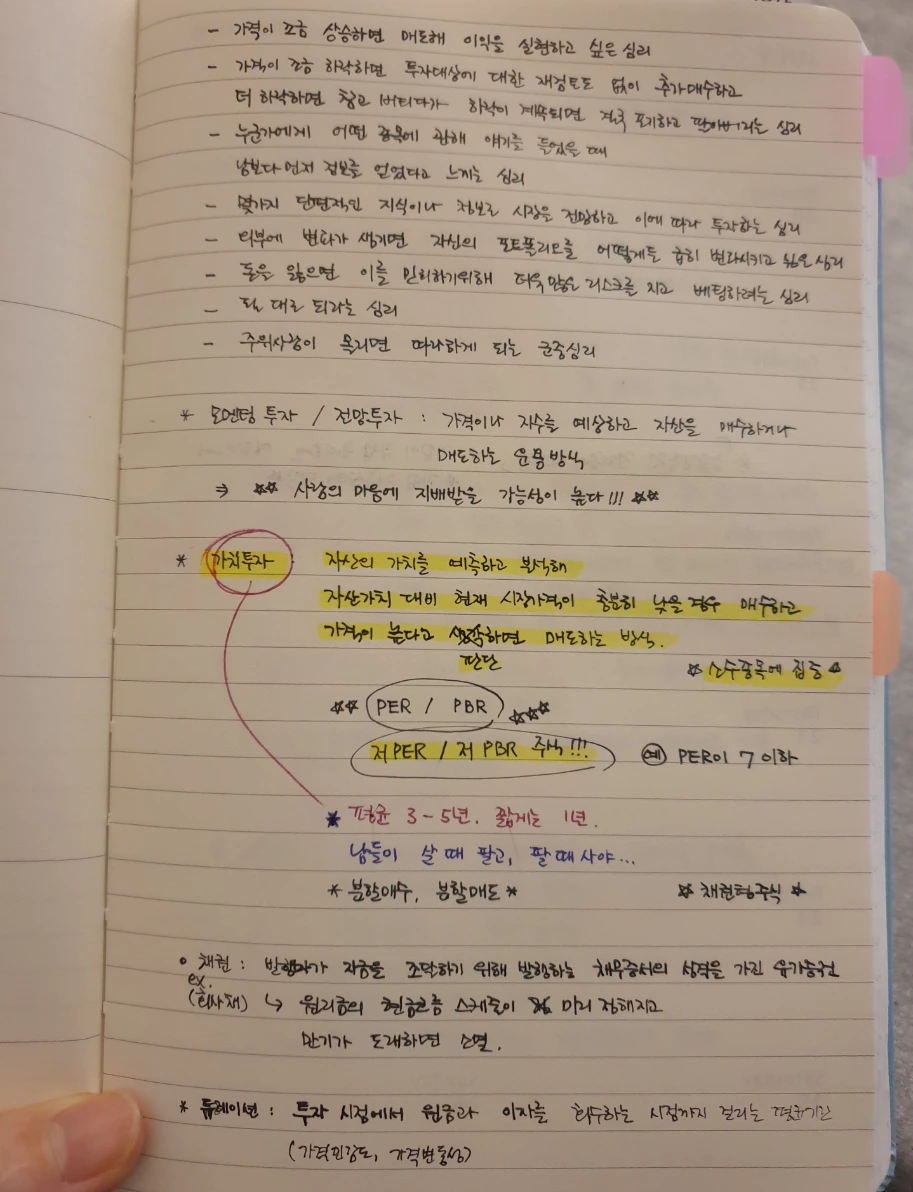 - 가격이 조금 상승하면 매도해 이익을 실현하고 싶은 심리
- 가격이 조금 하락하면 투자대상에 대한 재검토도 없이 추가매수하고
더 하락하면 참고 버티다가 하락이 계속되면 결국 포기하고 팔아버리는 심리
- 누군가에게 어떤 종목에 관해 얘기를 들었을 때
남보다 먼저 정보를 얻었다고 느끼는 심리
- 몇가지 단편적인 지식이나 정보로 시장을 전망하고 이에 따라 투자하는 심리
- 외부에 변화가 생기면 자신의 포트폴리오를 어떻게든 급히 변화시키고 싶은 심리
- 돈을 잃으면 이를 만회하기위해 더욱 많은 리스크를 지고 베팅하려는 심리
- 될 대로 되라는 심리
- 주위사람이 몰리면 따라하게 되는 군중심리
* 모멘텀 투자 / 전망투자 : 가격이나 지수를 예상하고 자산을 매수하거나
매도하는 운용방식
⇒ ☆☆ 사람의 마음에 지배받을 가능성이 높다!!! ☆☆
* 가치투자 자산의 가치를 예측하고 분석해
자산가치 대비 현재 시장가격이 충분히 낮을 경우 매수하고
가격이 높다고 생각하면 매도하는 방식.
판단
☆ 소수종목에 집중 ☆
☆☆ PER / PBR ☆☆☆
저PER / 저PBR 주식!!! 예 PER이 7 이하
* 평균 3-5년. 짧게는 1년.
남들이 살 때 팔고, 팔 때 사야...
* 분할매수, 분할매도 * ☆ 채권형주식 ☆
○ 채권 : 발행자가 자금을 조달하기 위해 발행하는 채무증서의 성격을 가진 유가증권
ex.
(회사채) ↳ 원리금의 현금흐름 스케줄이 미리 정해지고
만기가 도래하면 소멸.
* 듀레이션 : 투자 시점에서 원금과 이자를 회수하는 시점까지 걸리는 평균기간
(가격민감도, 가격변동성)